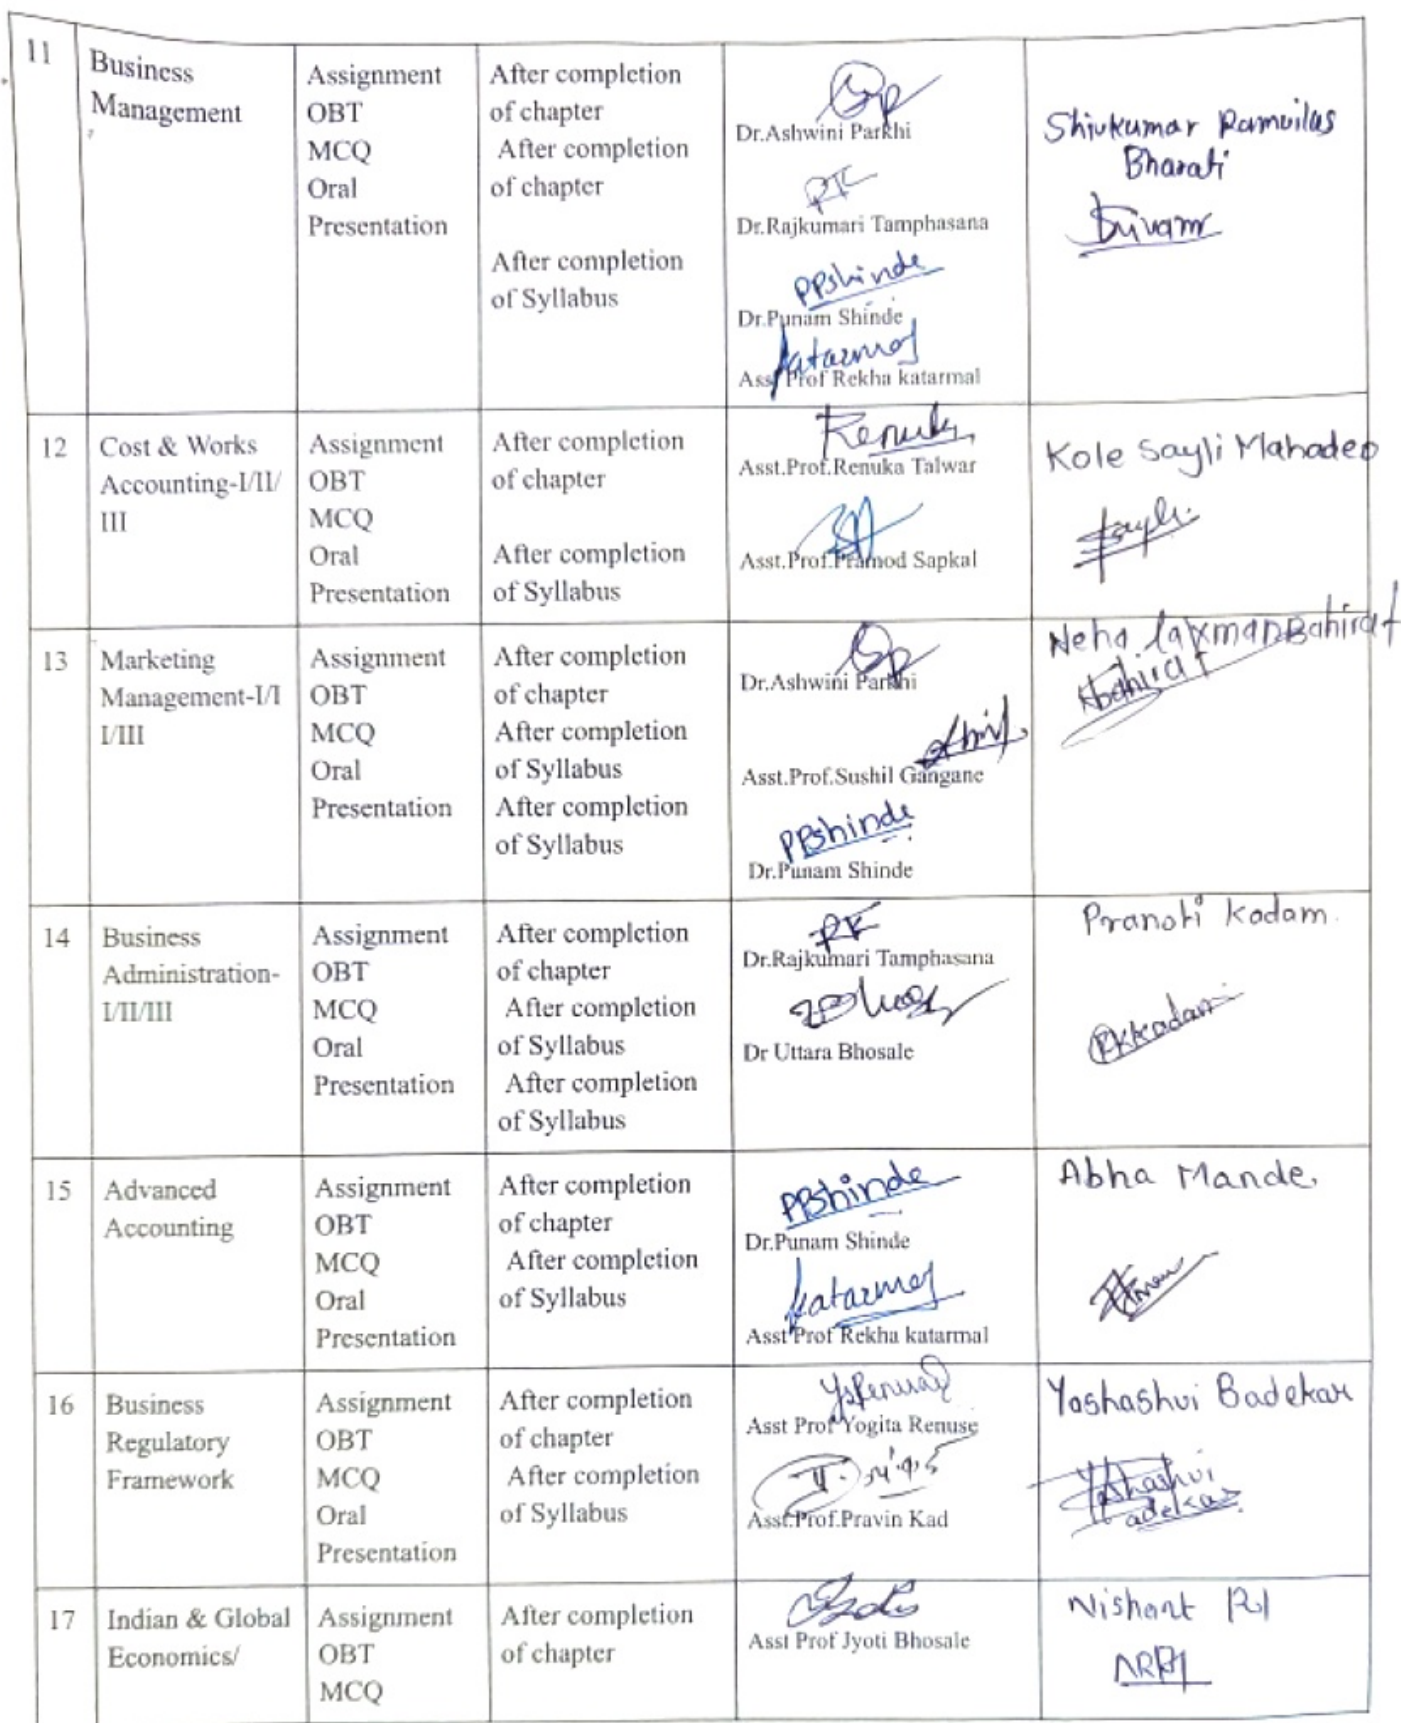 11
Business
Management
Assignment
OBT
MCQ
Oral
Presentation
After completion
of chapter
After completion
of chapter
After completion
of Syllabus
Dr.Ashwini Parkhi
Dr.Rajkumari Tamphasana
PPShinde
Dr.Punam Shinde
katarmal
Asst Prof Rekha katarmal
Shivkumar Ramvilas
Bharati
Shivam
12
Cost & Works
Accounting-I/II/
III
Assignment
OBT
MCQ
Oral
Presentation
After completion
of chapter
After completion
of Syllabus
Renuka
Asst.Prof.Renuka Talwar
Asst.Prof.Pramod Sapkal
Kole Sayli Mahadeo
Sayli
13
Marketing
Management-I/I
I/III
Assignment
OBT
MCQ
Oral
Presentation
After completion
of chapter
After completion
of Syllabus
After completion
of Syllabus
Dr.Ashwini Parkhi
Asst.Prof.Sushil Gangane
PPShinde
Dr.Punam Shinde
Neha laxman Bahirat
Nbahirat
14
Business
Administration-
I/II/III
Assignment
OBT
MCQ
Oral
Presentation
After completion
of chapter
After completion
of Syllabus
After completion
of Syllabus
Dr.Rajkumari Tamphasana
Dr Uttara Bhosale
Pranoti Kadam.
PKKadam
15
Advanced
Accounting
Assignment
OBT
MCQ
Oral
Presentation
After completion
of chapter
After completion
of Syllabus
PPShinde
Dr.Punam Shinde
katarmal
Asst Prof Rekha katarmal
Abha Mande.
16
Business
Regulatory
Framework
Assignment
OBT
MCQ
Oral
Presentation
After completion
of chapter
After completion
of Syllabus
Asst Prof Yogita Renuse
Asst.Prof.Pravin Kad
Yashashvi Badekar
Yashashvi
Badekar
17
Indian & Global
Economics/
Assignment
OBT
MCQ
After completion
of chapter
Asst Prof Jyoti Bhosale
Nishant